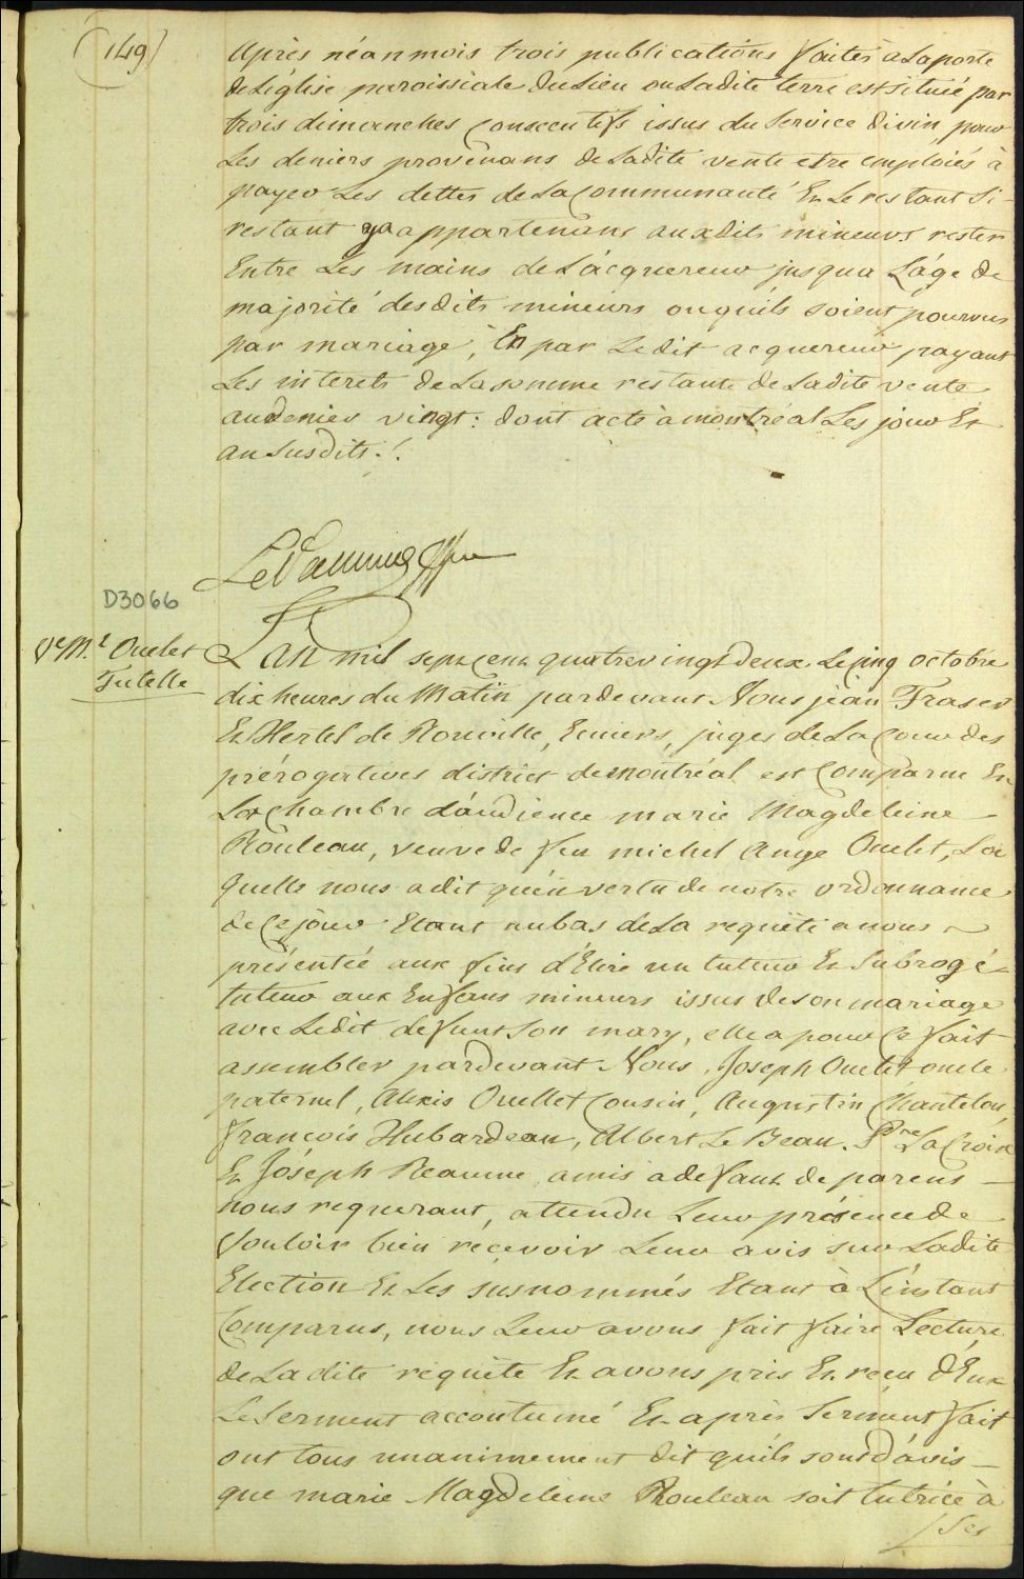 (149)
Après néanmois trois publications faites a Laporte
de Léglise paroissiale du Lieu ou Ladite terre est située par
trois dimanches Consecutifs issus du Service divin pour
Les deniers provenans de Ladite vente etre emploiés à
payer Les dettes de La Communauté Et Le restant Si
restant ya appartenans auxdits mineurs rester
Entre Les mains de L'acquereur jusqua L'age de
majorité desdits mineurs ou quils soient pourvus
par mariage, Et par Ledit acquereur payant
Les interets de La somme restante de Ladite vente
au denier vingt : dont acte à montréal Les jour Et
an Susdits ./.
D3066
Ve M.l Ouelet
Tutelle
L'An mil sept cent quatrevingt deux Le cinq octobre
dix heures du Matin pardevant Nous jean Fraser
Et Hertel de Rouville, Ecuiers, juges de La Cour des
prérogatives district de montréal est Comparue En
La Chambre d'audience marie Magdeleine
Rouleau, veuve de feu michel Ange Ouelet, La
quelle nous a dit qu'en vertu de notre ordonnance
de Ce jour Etant au bas de La requête a nous
présentée aux fins d'Elire un tuteur Et Subrogé
tuteur aux Enfans mineurs issus de son mariage
avec Ledit defunt Son mary, elle a pour Ce fait
assembler pardevant Nous, Joseph Ouelet oncle
paternel, Alexis Ouellet Cousin, Augustin Chantelou
françois Hubardeau, Albert Le Beau, Pre La Croix
Et Joseph Reaume, amis a defaut de parens
nous requerant, attendu Leur présence de
Vouloir bien recevoir Leur avis sur Ladite
Election Et Les susnommés Etant à L'instant
Comparus, nous Leur avons fait faire Lecture
de La dite requête Et avons pris Et reçu d'Eux
Le Serment accoutumé Et après Serment fait
ont tous unanimement dit quils sont d'avis
que marie Magdeleine Rouleau soit tutrice à
/ Ses